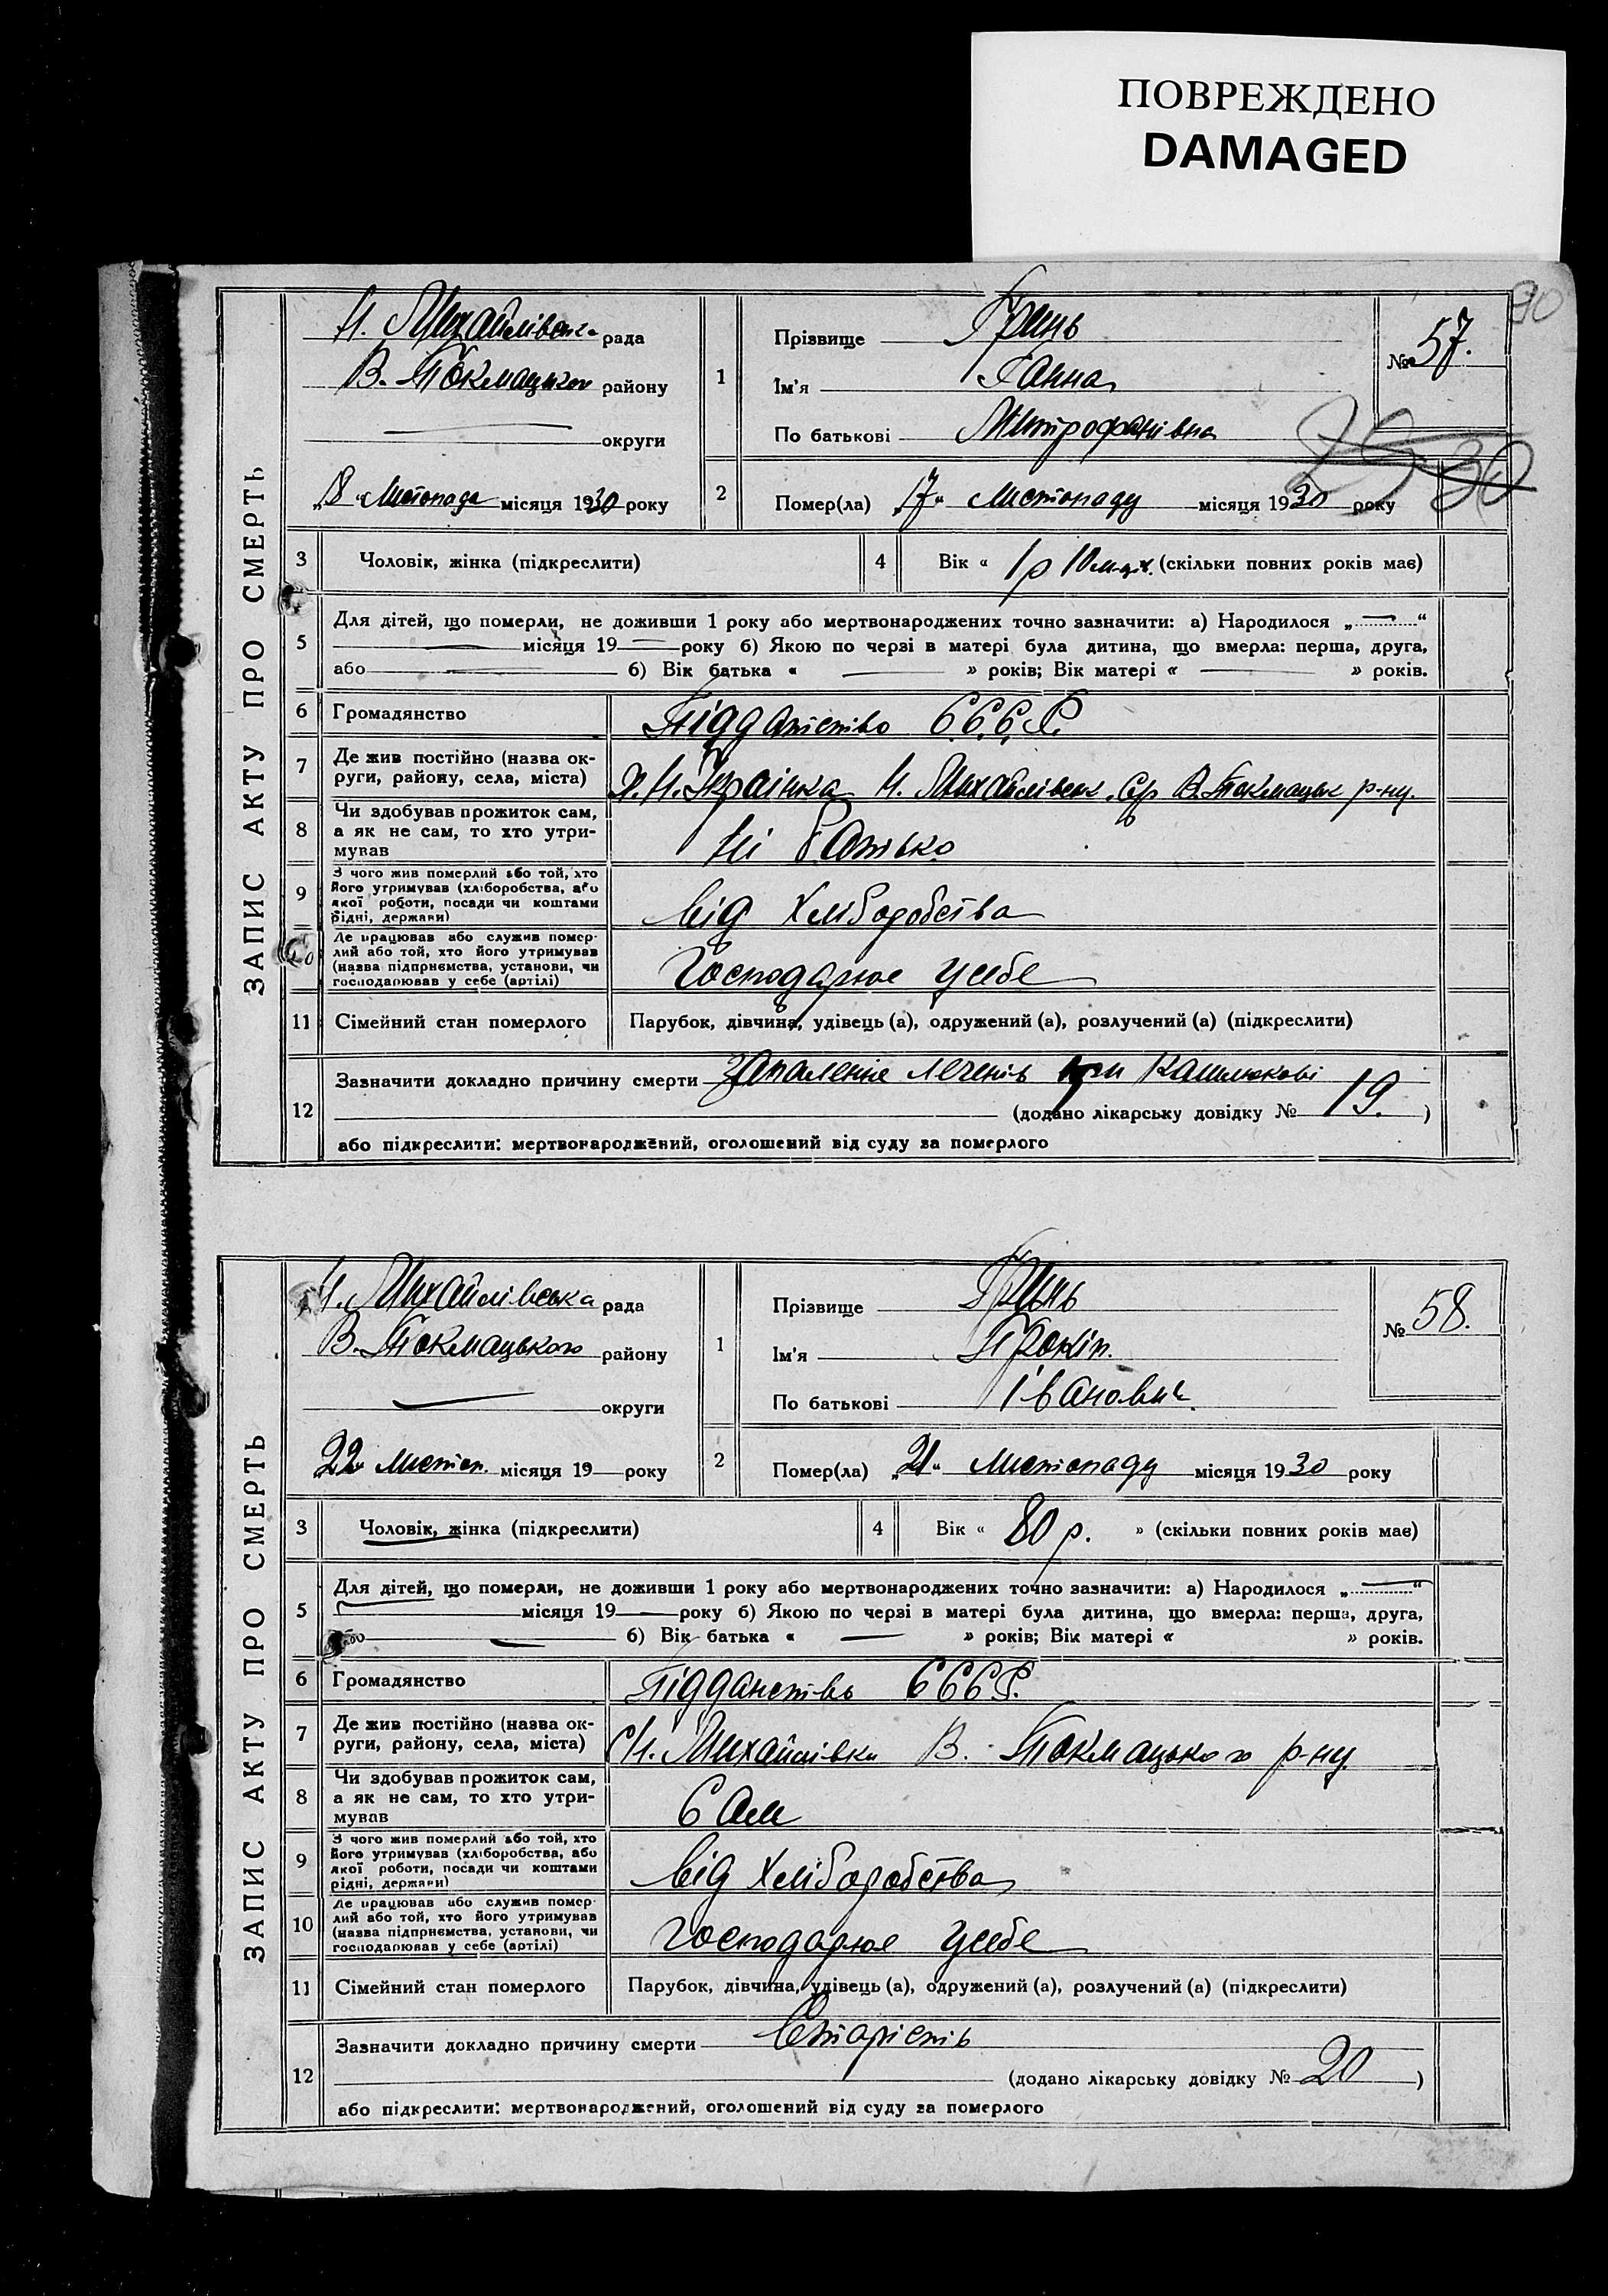 ПОВРЕЖДЕНО
DAMAGED
ЗАПИС АКТУ ПРО СМЕРТЬ
Н. Михайлівська рада
В. Токмацького району
округи
„18“ Листопада місяця 1930 року
1
Прізвище Гринь
Ім'я Ганна
По батькові Митрофанівна
№ 57.
30
2
Помер(ла) „17“ Листопаду місяця 1930 року
3 Чоловік, жінка (підкреслити)
4 Вік « 1 р 10 м-ців. (скільки повних років має)
5
Для дітей, що померли, не доживши 1 року або мертвонароджених точно зазначити: а) Народилося „ “
місяця 19 року б) Якою по черзі в матері була дитина, що вмерла: перша, друга,
або б) Вік батька « » років; Вік матері « » років.
6 Громадянство Підданство С.С.С.Р.
7 Де жив постійно (назва ок-
руги, району, села, міста)
Х. Н. Українка Н. Михайлівськ. С/р В. Токмацьк р-ну.
8 Чи здобував прожиток сам,
а як не сам, то хто утри-
мував
Ні Батько
9 З чого жив померлий або той, хто
його утримував (хліборобства, або
якої роботи, посади чи коштами
рідні, держави)
Від Хліборобства
10 Де працював або служив помер-
лий або той, хто його утримував
(назва підприємства, установи, чи
господарював у себе (артілі)
Господарює усебе
11 Сімейний стан померлого Парубок, дівчина, удівець (а), одружений (а), розлучений (а) (підкреслити)
12
Зазначити докладно причину смерти Запаленнє легенів при Кашлюкові
(додано лікарську довідку № 19. )
або підкреслити: мертвонароджений, оголошений від суду за померлого
ЗАПИС АКТУ ПРО СМЕРТЬ
Н. Михайлівська рада
В. Токмацького району
округи
„22“ Листоп. місяця 19 року
1
Прізвище Гринь
Ім'я Прокіп.
По батькові Іванович.
№ 58.
2
Помер(ла) „21“ Листопаду місяця 1930 року
3 Чоловік, жінка (підкреслити)
4 Вік « 80 р. » (скільки повних років має)
5
Для дітей, що померли, не доживши 1 року або мертвонароджених точно зазначити: а) Народилося „ “
місяця 19 року б) Якою по черзі в матері була дитина, що вмерла: перша, друга,
або б) Вік батька « » років; Вік матері « » років.
6 Громадянство Підданство СССР.
7 Де жив постійно (назва ок-
руги, району, села, міста)
С Н. Михайлівка В. Токмацького р-ну.
8 Чи здобував прожиток сам,
а як не сам, то хто утри-
мував
Сам
9 З чого жив померлий або той, хто
його утримував (хліборобства, або
якої роботи, посади чи коштами
рідні, держави)
Від Хліборобства
10 Де працював або служив помер-
лий або той, хто його утримував
(назва підприємства, установи, чи
господарював у себе (артілі)
Господарює усебе
11 Сімейний стан померлого Парубок, дівчина, удівець (а), одружений (а), розлучений (а) (підкреслити)
12
Зазначити докладно причину смерти Старість
(додано лікарську довідку № 20 )
або підкреслити: мертвонароджений, оголошений від суду за померлого